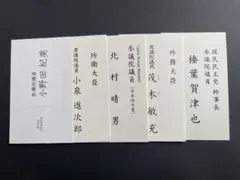 国民民主党 幹事長
参議院議員
榛葉賀津也
外務大臣
茂木敏充
衆議院議員
参議院議員
北村晴男
防衛大臣
小泉進次郎
衆議院議員
小野田紀美